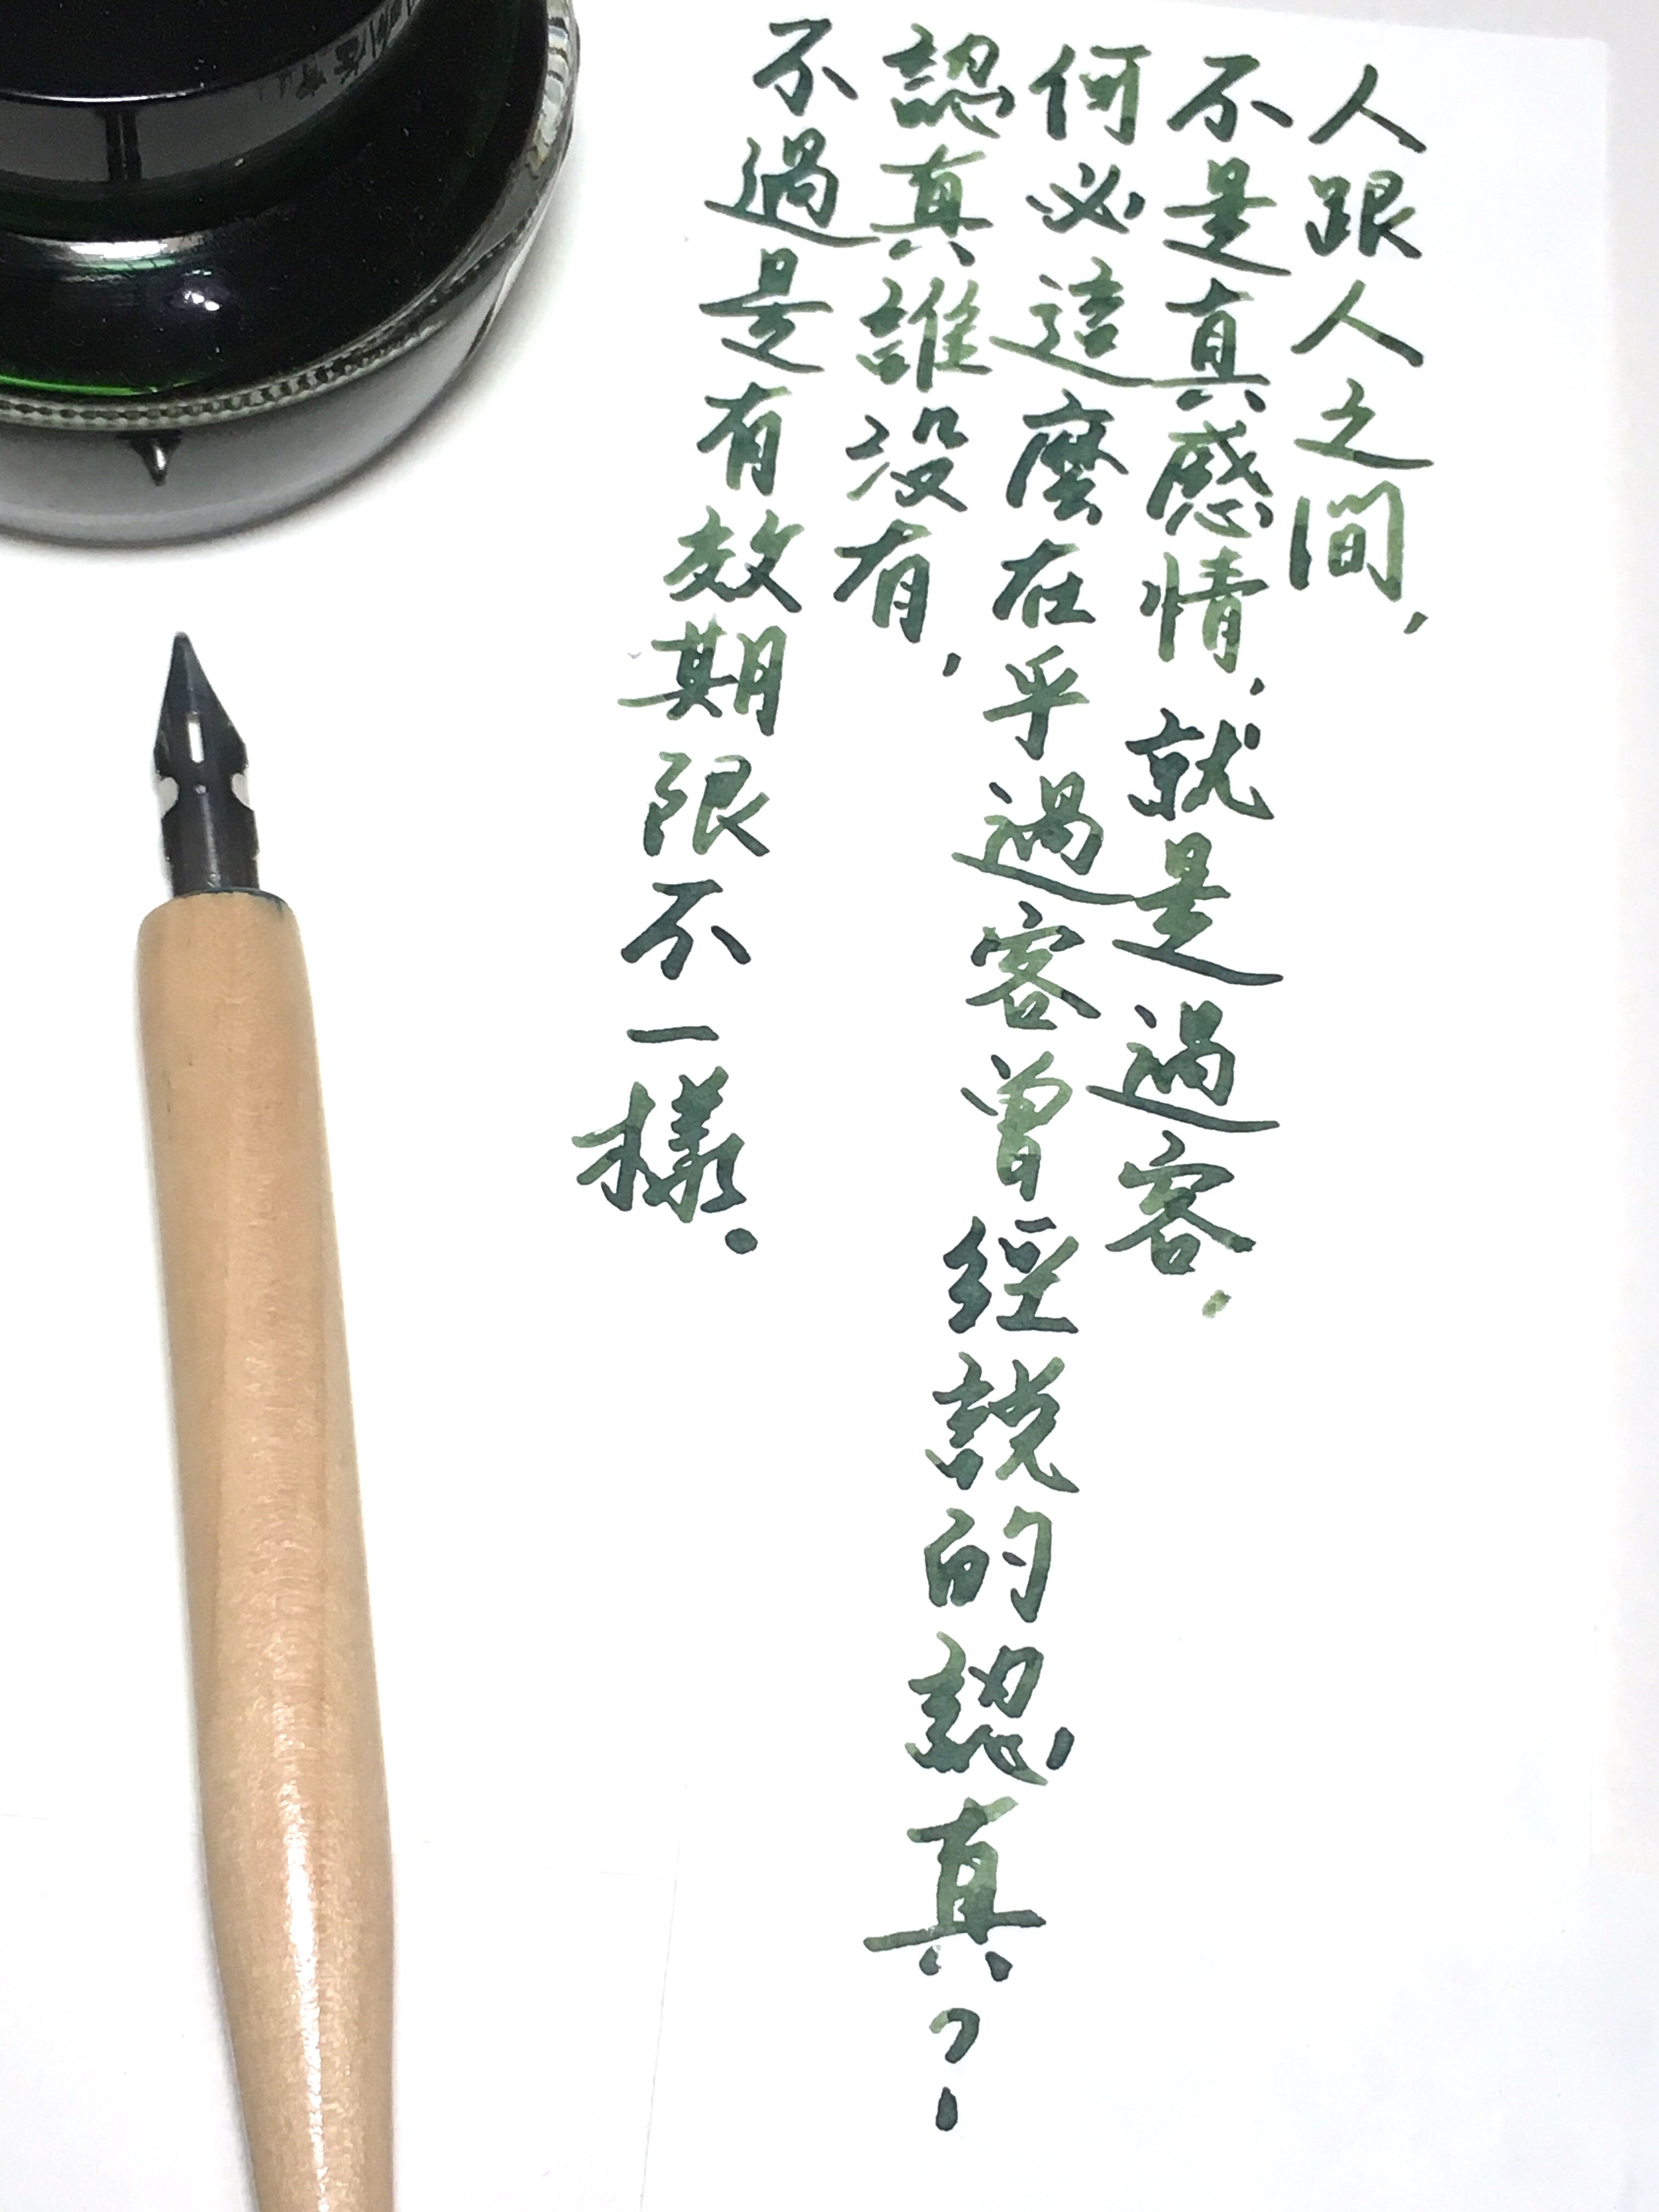 人跟人之間，
不是真感情，就是過客，
何必這麼在乎過客曾經說的認真？
認真誰沒有，
不過是有效期限不一樣。